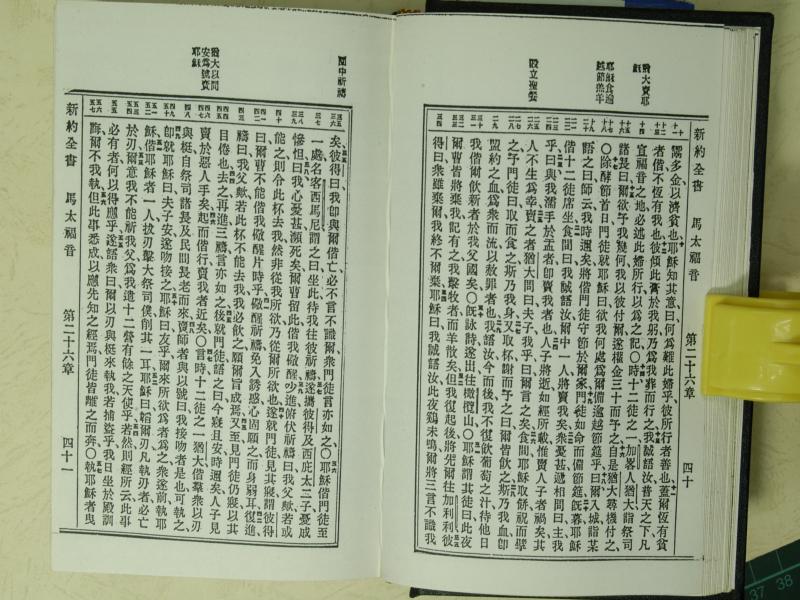 新約全書　馬太福音　第二十六章　四十
猶大賣耶穌
耶穌食逾越節羔羊
設立聖餐
鬻多金以濟貧也耶穌知其意曰何爲難此婦乎彼所行者善也蓋爾恆有貧
者偕不恆有我也彼傾此膏於我躬乃爲我葬而行之我誠語汝普天之下凡
宣福音之地必述此婦所行以爲之記〇時十二徒之一加畧人猶大詣祭司
諸長曰爾欲予我幾何我以彼付爾遂權金三十而予之自是猶大尋機付之
〇除酵節首日門徒就耶穌曰欲我何處爲爾備逾越節筵乎曰爾入城詣某
語之曰師云我時邇矣將偕門徒守節於爾家門徒如命而備節筵旣暮耶穌
偕十二徒席坐食間曰我誠語汝爾中一人將賣我矣衆憂甚遞相問曰主我
乎曰與我濡手於盂者卽賣我者也人子將逝如經所載惟賣人子者禍矣其
人不生爲幸賣之者猶大問曰夫子我乎曰爾言之矣食間耶穌取餅祝而擘
之予門徒曰取而食之斯乃我身又取杯謝而予之曰爾皆飲之斯乃我血卽
盟約之血爲衆而流以赦罪者也我語汝今而後我不復飲葡萄之汁待他日
我偕爾飲新者於我父國矣〇旣詠詩遂出往橄欖山〇耶穌謂其徒曰此夜
爾曹皆將棄我記有之我擊牧者而羊散矣但我復起後將先爾往加利利彼
得曰衆雖棄爾我終不爾棄耶穌曰我誠語汝此夜雞未鳴爾將三言不識我
囿中祈禱
猶大以吻安爲號賣耶穌
矣彼得曰我卽與爾偕亡必不言不識爾衆門徒言亦如之〇耶穌偕門徒至
一處名客西馬尼謂之曰坐此待我往彼祈禱遂攜彼得及西庇太二子憂戚
慘怛曰我心憂甚瀕死矣爾曹留此偕我儆醒少進俯伏祈禱曰我父歟若或
能之則令此杯去我然非從我所欲乃從爾所欲也遂就門徒見其寢謂彼得
曰爾曹不能偕我儆醒片時乎儆醒祈禱免入誘惑心固願之而身弱耳復進
禱曰我父歟若此杯不能去我我必飲之願爾旨成焉又至見門徒仍寢以其
目倦也去之再進三禱言亦如之後就門徒語之曰今寢且安時邇矣人子見
賣於惡人手矣起而偕行賣我者近矣〇言時十二徒之一猶大偕羣衆以刃
與梃自祭司諸長及民間長老而來賣師者與以號曰我接吻者是也可執之
卽就耶穌曰夫子安遂吻接之耶穌曰友乎爾來所欲爲者爲之衆遂前執耶
穌偕耶穌者一人拔刃擊大祭司僕削其一耳耶穌曰韜爾刃凡執刃者必亡
於刃爾意我不能祈我父爲我遣十二營有餘之天使乎若然則經所云此事
必有者何以得應乎遂語衆曰爾以刃與梃來執我若捕盜乎我日坐於殿訓
誨爾不我執但此事悉成以應先知之經焉門徒皆離之而奔〇執耶穌者曳
新約全書　馬太福音　第二十六章　四十一
37 38